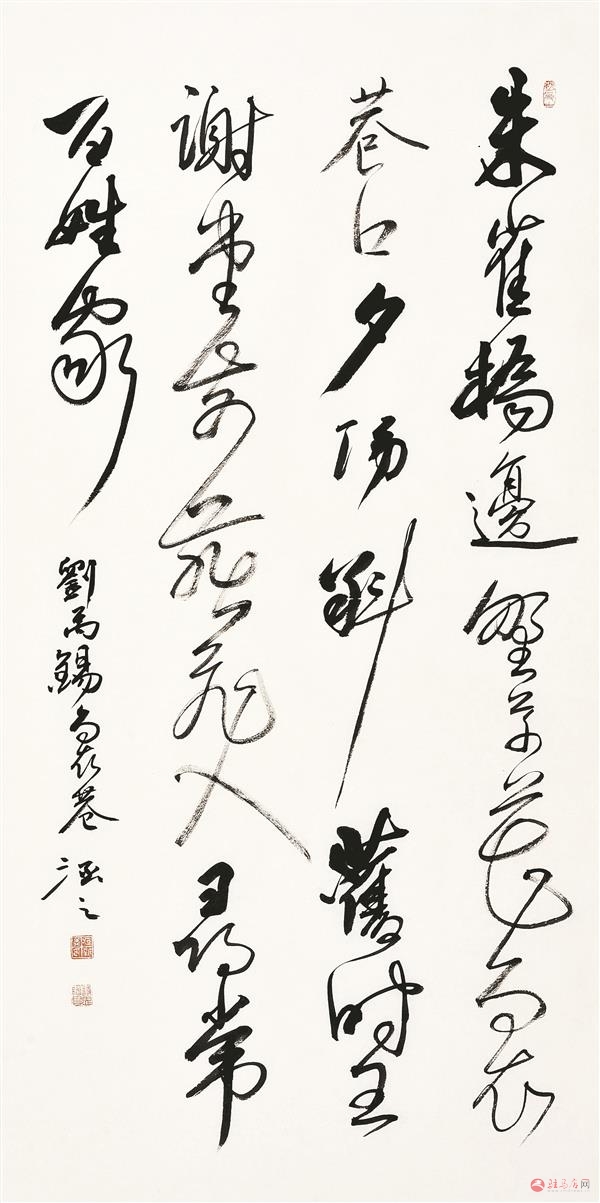 朱雀橋邊野草花烏衣
巷口夕陽斜舊時王
謝堂前燕飛入尋常
百姓家
劉禹錫烏衣巷 涵之
驻马店网